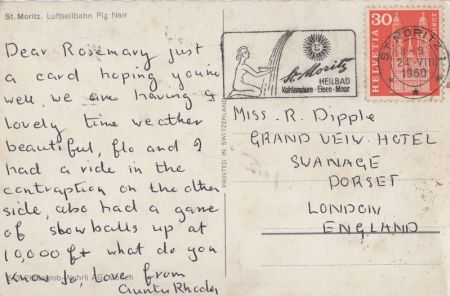 St. Moritz. Luftseilbahn Piz Nair
Dear Rosemary just
a card hoping you're
well. we are having a
lovely time weather
beautiful, flo and I
had a ride in the
contraption on the other
side, also had a game
of snowballs up at
10,000 ft what do you
know Jo, love from
Aunty Rhoda
PRINTED IN SWITZERLAND
St. Moritz
HEILBAD
Kohlensäure - Eisen - Moor
HELVETIA
30
ST. MORITZ 1
24.-VIII
1960
Miss. R. Dipple
GRAND VEIW. HOTEL
SWANAGE
DORSET
LONDON
ENGLAND